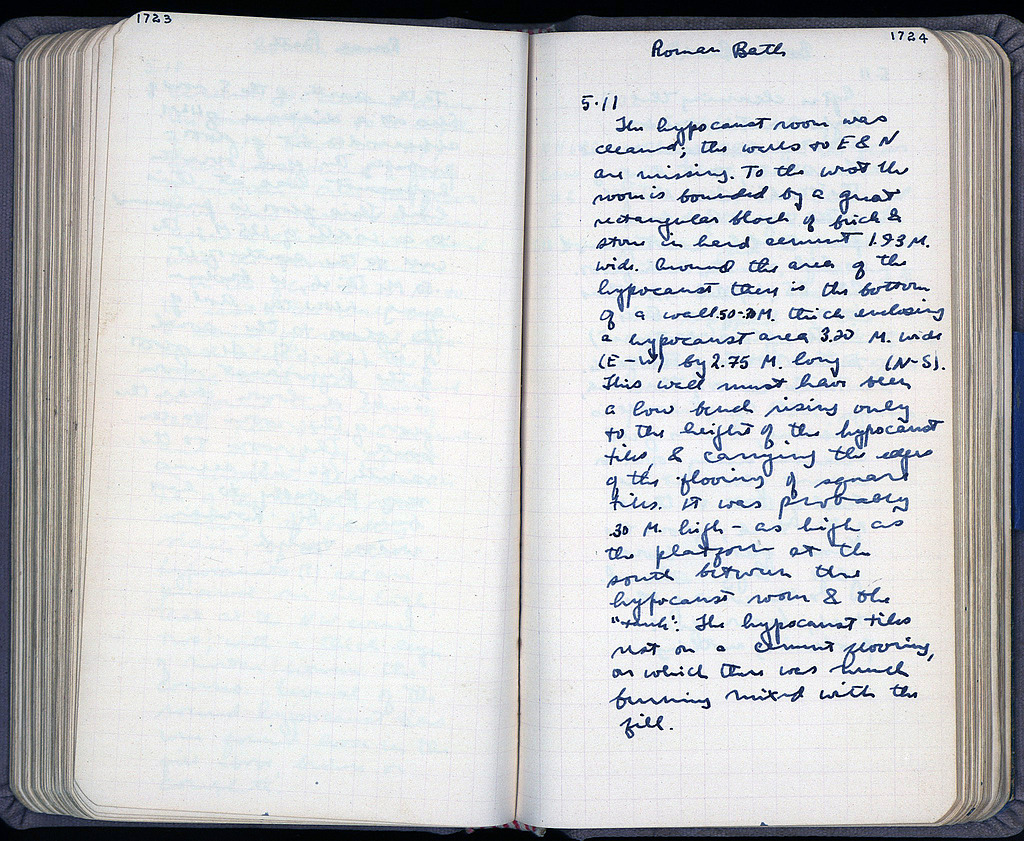 1723
1724
Roman Bath
5.11
The hypocaust room was
cleaned; the walls to E & N
are missing. To the west the
room is bounded by a great
rectangular block of brick &
stone in hard cement 1.93 M.
wide. Around the area of the
hypocaust there is the bottom
of a wall .50-.70 M. thick enclosing
a hypocaust area 3.20 M. wide
(E-W) by 2.75 M. long (N-S).
This wall must have been
a low bench rising only
to the height of the hypocaust
tiles, & carrying the edges
of the flooring of square
tiles. It was probably
.30 M. high - as high as
the platform at the
south between the
hypocaust room & the
"tank". The hypocaust tiles
rest on a cement flooring,
on which there was much
burning mixed with the
fill.